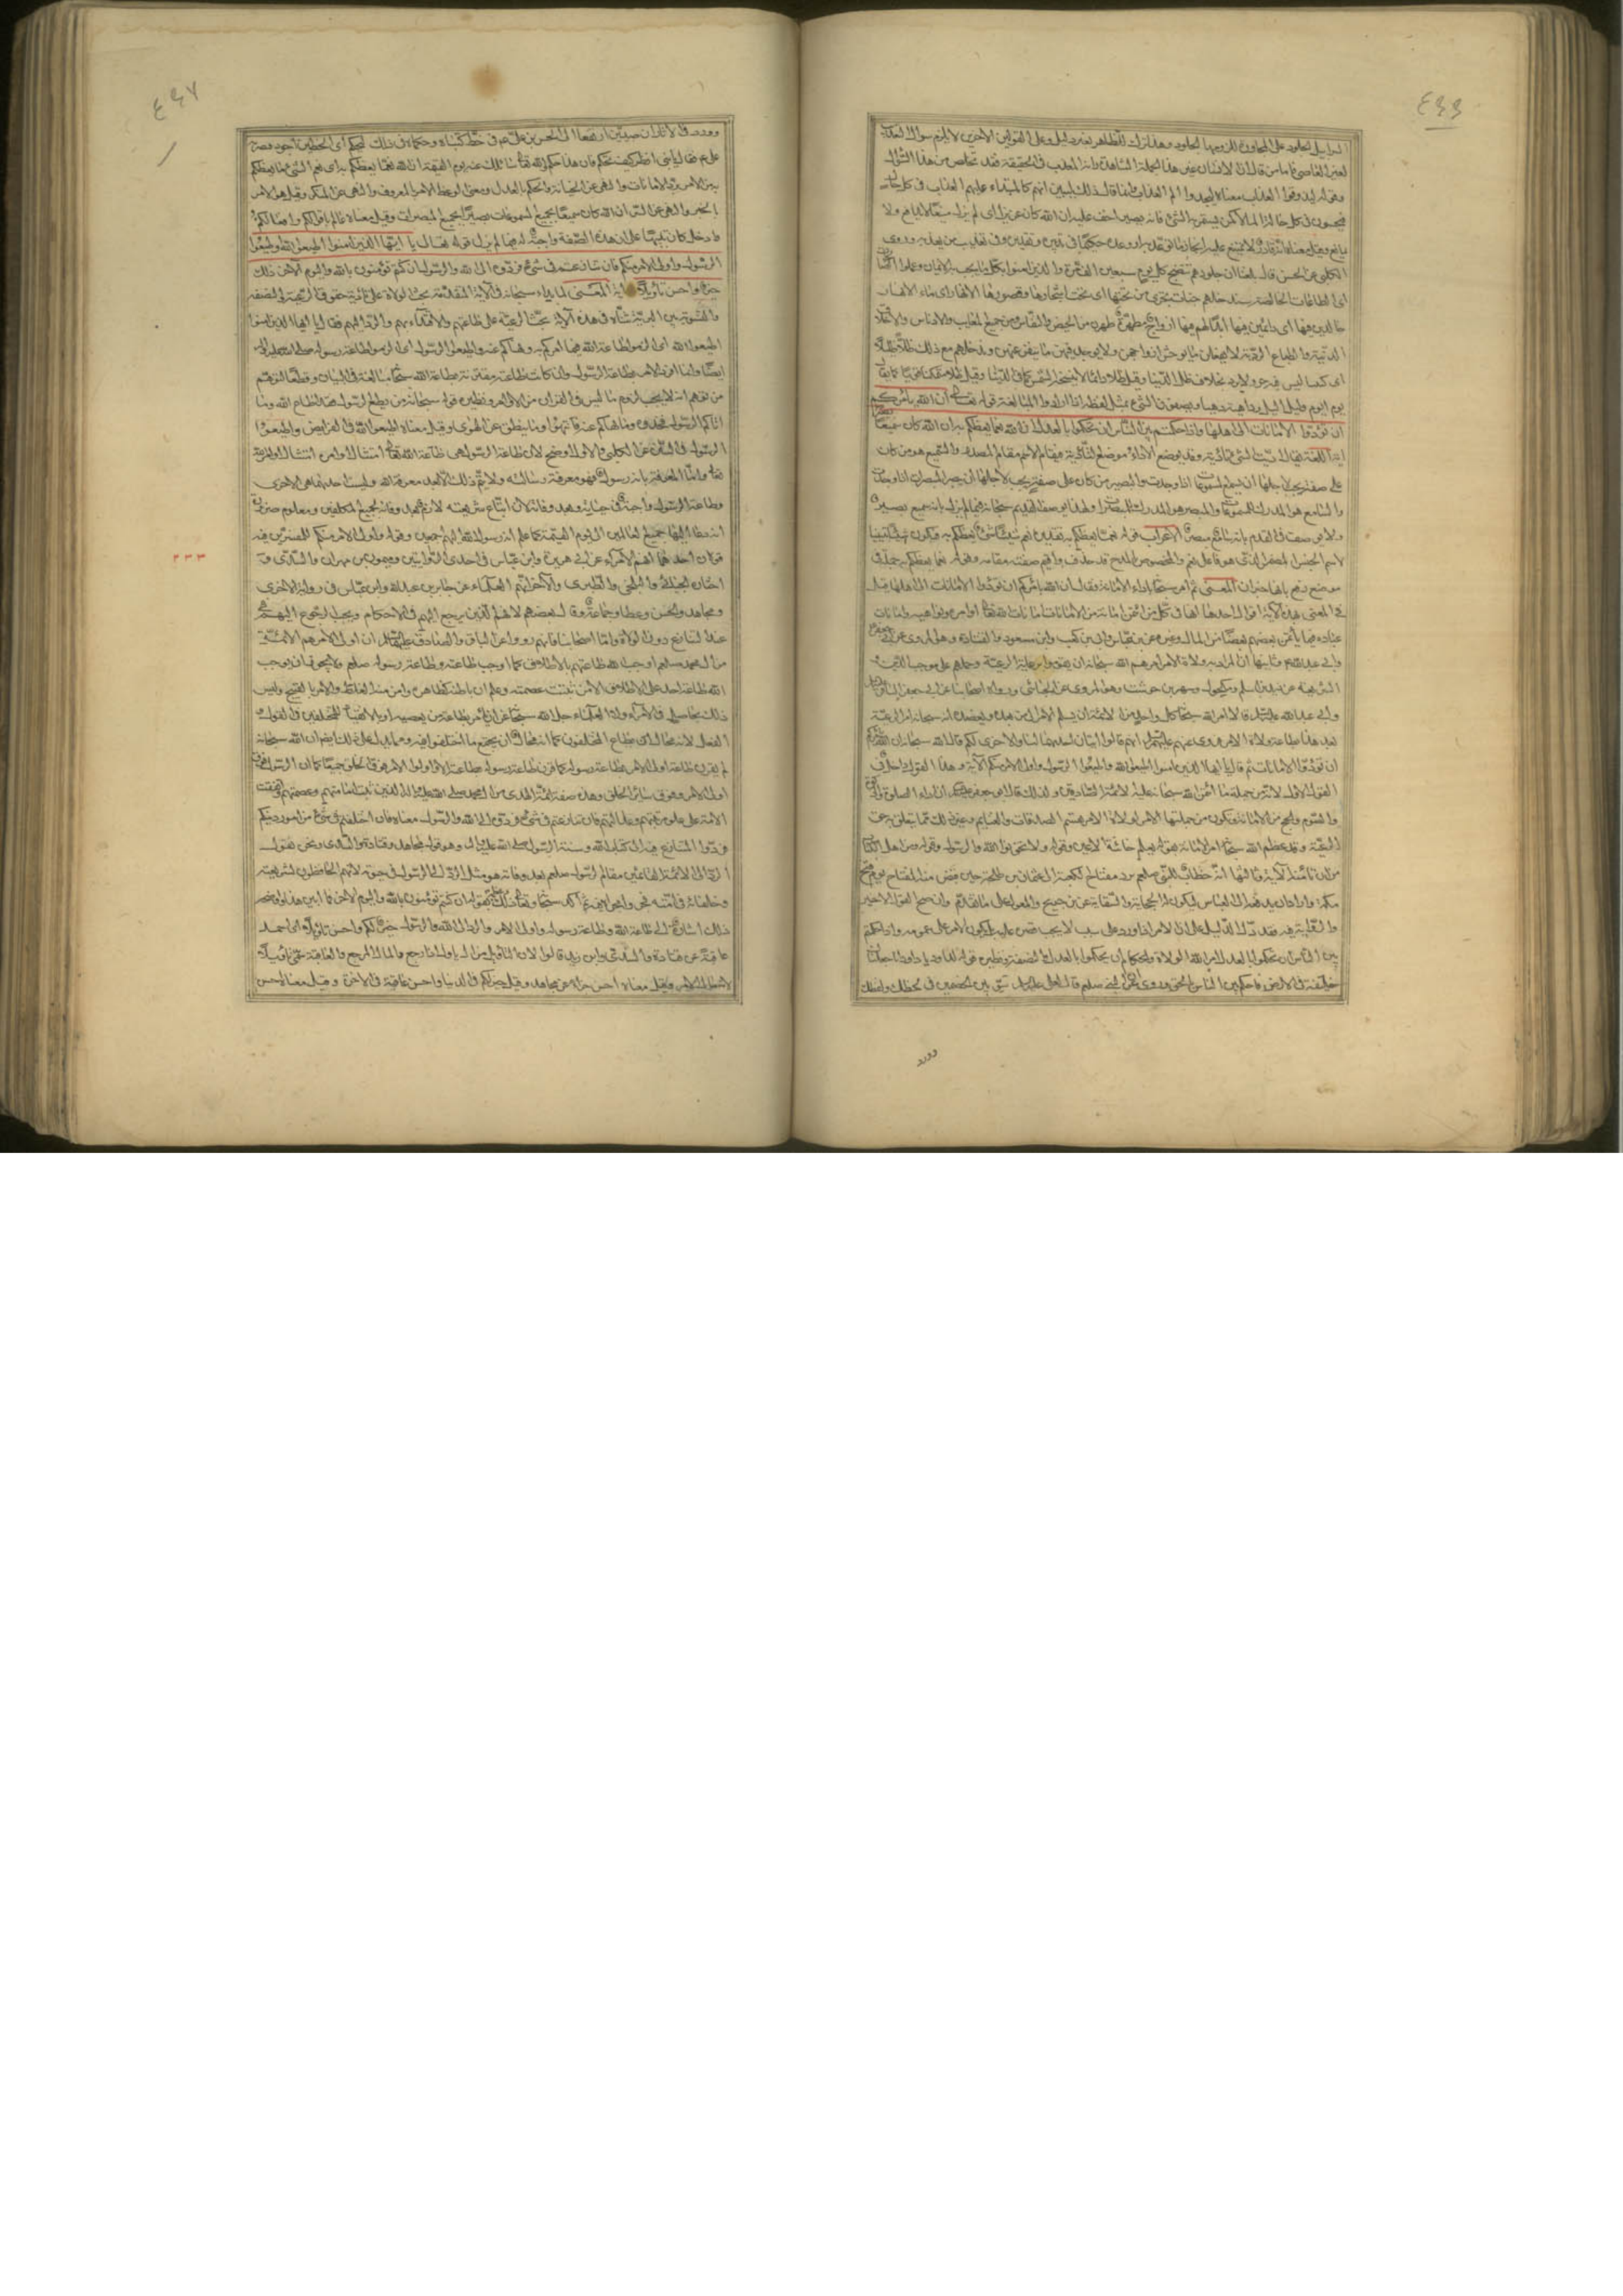 السرابيل الجلود على المجاورة للزومها الجلود وهذا ترك للظاهر بغير دليل وعلى القولين الاخيرين لا يلزم سوال العذاب
لغير العاصي فاما من قال ان الانسان غير هذه الجملة المشاهدة وانه المعذب في الحقيقة فقد تخلص من هذا السؤال
وقوله ليذوقوا العذاب معناه ليجدوا الم العذاب وانما قال ذلك ليبين انهم كالمبتداء عليهم العذاب في كل حالة
فيحسون في كل حالة الما لا كمن يستمر به الشئ فانه يصير اخف عليه ان الله كان عزيزا اى لم يزل منيعا لا يدافع ولا
يمانع وقيل معناه انه قادر لا يمتنع عليه انجاز ما توعد به او وعده حكيما في تدبيره وتقديره وفي تعذيب من يعذبه وروى
الكلبي عن الحسن قال بلغنا ان جلودهم تنضج كل يوم سبعين الف مرة والذين امنوا بكل ما يجب به الايمان وعملوا الصالحات
اى الطاعات الخالصة سندخلهم جنات تجرى من تحتها اى تحت اشجارها وقصورها الانهار اى ماء الانهار
خالدين فيها اى دائمين فيها ابدا لهم فيها ازواج مطهرة طهرن من الحيض والنفاس ومن جميع المعايب والادناس والاخلاق
الدنية والطباع الردية لا يفعلن ما يوحش ازواجهن ولا يوجد فيهن ما ينفر عنهن وندخلهم مع ذلك ظلا ظليلا
اى كنينا ليس فيه حر ولا برد بخلاف ظل الدنيا وقيل ظلا دائما لا تنسخه الشمس كما في الدنيا وقيل ظلا متمكنا قويا كما يقال
يوم ايوم وليل اليل وداهية دهياء يصفون الشئ بمثل لفظه اذا ارادوا المبالغة قوله تعالى ان الله يأمركم
ان تؤدوا الامانات الى اهلها واذا حكمتم بين الناس ان تحكموا بالعدل ان الله نعما يعظكم به ان الله كان سميعا بصيرا
اية اللغة يقال اديت الشئ تأدية وقد يوضع الاداء موضع التأدية فيقام الاسم مقام المصدر والسميع هو من كان
على صفة يجب لاجلها ان يسمع المسموعات اذا وجدت والبصير من كان على صفة يجب لاجلها ان يبصر المبصرات اذا وجدت
والسامع هو المدرك للمسموعات والمبصر هو المدرك للمبصرات ولهذا يوصف القديم سبحانه فيما لم يزل بانه سميع بصير
ولا يوصف في القدم بانه سامع مبصر الاعراب قوله نعما يعظكم به تقديره نعم شيئا شئ يعظكم به فيكون شيئا تبيينا
لاسم الجنس المضمر الذى هو فاعل نعم والمخصوص بالمدح قد حذف واقيم صفته مقامه وقوله نعما يعظكم به جملة في
موضع رفع بانها خبر ان المعنى ثم امر سبحانه باداء الامانة وقال ان الله يأمركم ان تؤدوا الامانات الى اهلها قيل
في المعنى بهذه الآية اقوال احدها انها في كل من اؤتمن امانة من الامانات امانات الله تعالى اوامره ونواهيه وامانات
عباده فيما يأتمن بعضهم بعضا من المال وغيره عن ابن عباس وابي بن كعب وابن مسعود والحسن وقتادة وهو المروى عن ابي جعفر
وابي عبد الله ع وثانيها ان المراد به ولاة الامر امرهم الله سبحانه ان يقوموا برعاية الرعية وحملهم على موجب الدين
الشريعة عن زيد بن اسلم ومكحول وشهر بن حوشب وهو المروى عن الجبائي ورواه اصحابنا عن ابي جعفر الباقر
وابي عبد الله عليهما السلام قالا امر الله سبحانه كل واحد من الائمة ان يسلم الامر الى من بعده ويعضده انه سبحانه امر الرعية
بعد هذا بطاعة ولاة الامر وروى عنهم عليهم السلام انهم قالوا آيتان احداهما لنا والاخرى لكم قال الله سبحانه ان الله يأمركم
ان تؤدوا الامانات ثم قال يا ايها الذين امنوا اطيعوا الله واطيعوا الرسول واولى الامر منكم الآية وهذا القول داخل في
القول الاول لانه من جملة ما ائتمن الله سبحانه عليه الائمة الصادقين ولذلك قال ابو جعفر عليه السلام ان اداء الصلوة والزكوة
والصوم والحج من الامانة ويكون من جملتها الامر لولاة الامر بقسم الصدقات والغنايم وغير ذلك مما يتعلق به حق
الرعية وقد عظم الله سبحانه امر الامانة بقوله يعلم خائنة الاعين وقوله ولا تخونوا الله والرسول وقوله ومن اهل الكتاب
من ان تأمنه الآية وثالثها انه خطاب للنبي صلعم برد مفتاح الكعبة الى عثمان بن طلحة حين قبض منه المفتاح يوم فتح
مكة واراد ان يدفعه الى العباس لتكون له الحجابة والسقاية عن ابن جريج والمعول على ما تقدم وان صح القول الاخير
والرواية فيه فقد دل الدليل على ان الامر اذا ورد على سبب لا يجب قصره عليه بل يكون الامر على عمومه واذا حكمتم
بين الناس ان تحكموا بالعدل امر الله الولاة والحكام ان يحكموا بالعدل والنصفة ونظيره قوله يا داود انا جعلناك
خليفة في الارض فاحكم بين الناس بالحق وروى ان النبي صلعم قال لعلى عليه السلام سو بين الخصمين في لحظك ولفظك
وورد
وورد في الآثار ان صبيين ارتفعا الى الحسن بن على ع في خط كتباه وحكماه في ذلك ليحكم اى الخطين اجود فبصر به
على ع فقال يا بني انظر كيف تحكم فان هذا حكم والله تعالى سائلك عنه يوم القيمة ان الله نعما يعظكم به اى نعم الشئ ما يعظكم
به من الامر برد الامانات والنهى عن الخيانة والحكم بالعدل ومعنى الوعظ الامر بالمعروف والنهى عن المنكر وقيل هو الامر
بالخير والنهى عن الشر ان الله كان سميعا بجميع المسموعات بصيرا بجميع المبصرات وقيل معناه عالم باقوالكم وافعالكم
وادخل كان تنبيها على ان هذه الصفة واجبة له فيما لم يزل قوله تعالى يا ايها الذين امنوا اطيعوا الله واطيعوا
الرسول واولى الامر منكم فان تنازعتم في شئ فردوه الى الله والرسول ان كنتم تؤمنون بالله واليوم الآخر ذلك
خير واحسن تأويلا اية المعنى لما بدء سبحانه في الآية المتقدمة بحث الولاة على تأدية حقوق الرعية والنصفة
والتسوية بين البرية ثناه في هذه الآية بحث الرعية على طاعتهم والاقتداء بهم والرد اليهم فقال يا ايها الذين امنوا
اطيعوا الله اى الزموا طاعة الله فيما امركم به ونهاكم عنه واطيعوا الرسول اى الزموا طاعة رسوله صلى الله عليه واله
ايضا وانما افرد الامر بطاعة الرسول وان كانت طاعته مقترنة بطاعة الله سبحانه مبالغة في البيان وقطعا لتوهم
من توهم انه لا يجب لزوم ما ليس في القرآن من الاوامر ونظيره قوله سبحانه من يطع الرسول فقد اطاع الله وما
اتاكم الرسول فخذوه وما نهاكم عنه فانتهوا وما ينطق عن الهوى وقيل معناه اطيعوا الله في الفرايض واطيعوا
الرسول في السنن عن الكلبي والاول اوضح لان طاعة الرسول هى طاعة الله تعالى امتثال اوامره امتثال اوامر الله
تعالى واما المعرفة بانه رسول الله فهو معرفة رسالته ولا يتم ذلك الا بعد معرفة الله وليست احديهما هى الاخرى
وطاعة الرسول واجبة في حياته وبعد وفاته لان اتباع شريعته لازم بعد وفاته لجميع المكلفين ومعلوم ضرورة
انه دعا اليها جميع العالمين الى يوم القيمة كما علم انه رسول الله اليهم اجمعين وقوله واولى الامر منكم للمفسرين فيه
قولان احدهما انهم الامراء عن ابي هريرة وابن عباس في احدى الروايتين وميمون بن مهران والسدى و
اختاره الجبائي والبلخي والطبرى والآخر انهم العلماء عن جابر بن عبد الله وابن عباس في رواية الاخرى
ومجاهد والحسن وعطا وجماعة وقال بعضهم لانهم الذين يرجع اليهم في الاحكام ويجب الرجوع اليهم
عند التنازع دون الولاة واما اصحابنا فانهم رووا عن الباقر والصادق عليهما السلام ان اولى الامر هم الائمة
من آل محمد صلعم اوجب الله طاعتهم بالاطلاق كما اوجب طاعته وطاعة رسوله صلعم ولا يجوز ان يوجب
الله طاعة احد على الاطلاق الا من ثبتت عصمته وعلم ان باطنه كظاهره وامن منه الغلط والامر بالقبيح وليس
ذلك بحاصل في الامراء ولا العلماء جل الله سبحانه عن ان يأمر بطاعة من يعصيه او بالانقياد للمختلفين في القول و
الفعل لانه محال ان يطاع المختلفون كما انه محال ان يجتمع ما اختلفوا فيه ومما يدل على ذلك ايضا ان الله سبحانه
لم يقرن طاعة اولى الامر بطاعة رسوله كما قرن طاعة رسوله بطاعته الا واولوا الامر فوق الخلق جميعا كما ان الرسول فوق
اولى الامر وفوق سائر الخلق وهذه صفة ائمة الهدى من آل محمد صلى الله عليه واله الذين ثبتت امامتهم وعصمتهم واتفقت
الامة على علو رتبتهم وعدالتهم فان تنازعتم في شئ فردوه الى الله والرسول معناه فان اختلفتم في شئ من امور دينكم
فردوا التنازع فيه الى كتاب الله وسنة الرسول صلى الله عليه واله وهو قول مجاهد وقتادة والسدى ونحن نقول
الرد الى الائمة القائمين مقام الرسول صلعم بعد وفاته هو مثل الرد الى الرسول في حيوته لانهم الحافظون لشريعته
وخلفاؤه في امته فجروا مجراه فيه ثم اكد سبحانه ذلك بقوله ان كنتم تؤمنون بالله واليوم الاخر فما ابين هذا واوضحه
ذلك اشارة الى طاعة الله وطاعة رسوله واولى الامر والرد الى الله والرسول خير لكم واحسن تأويلا اى احمد
عاقبة عن قتادة والسدى وابن زيد قالوا لان التأويل من آل يؤل اذا رجع والمآل المرجع والعاقبة سمى تأويلا
لانه مآل الامر وقيل معناه احسن جزاء عن مجاهد وقيل خير لكم في الدنيا واحسن عاقبة في الاخرة وقيل معناه احسن